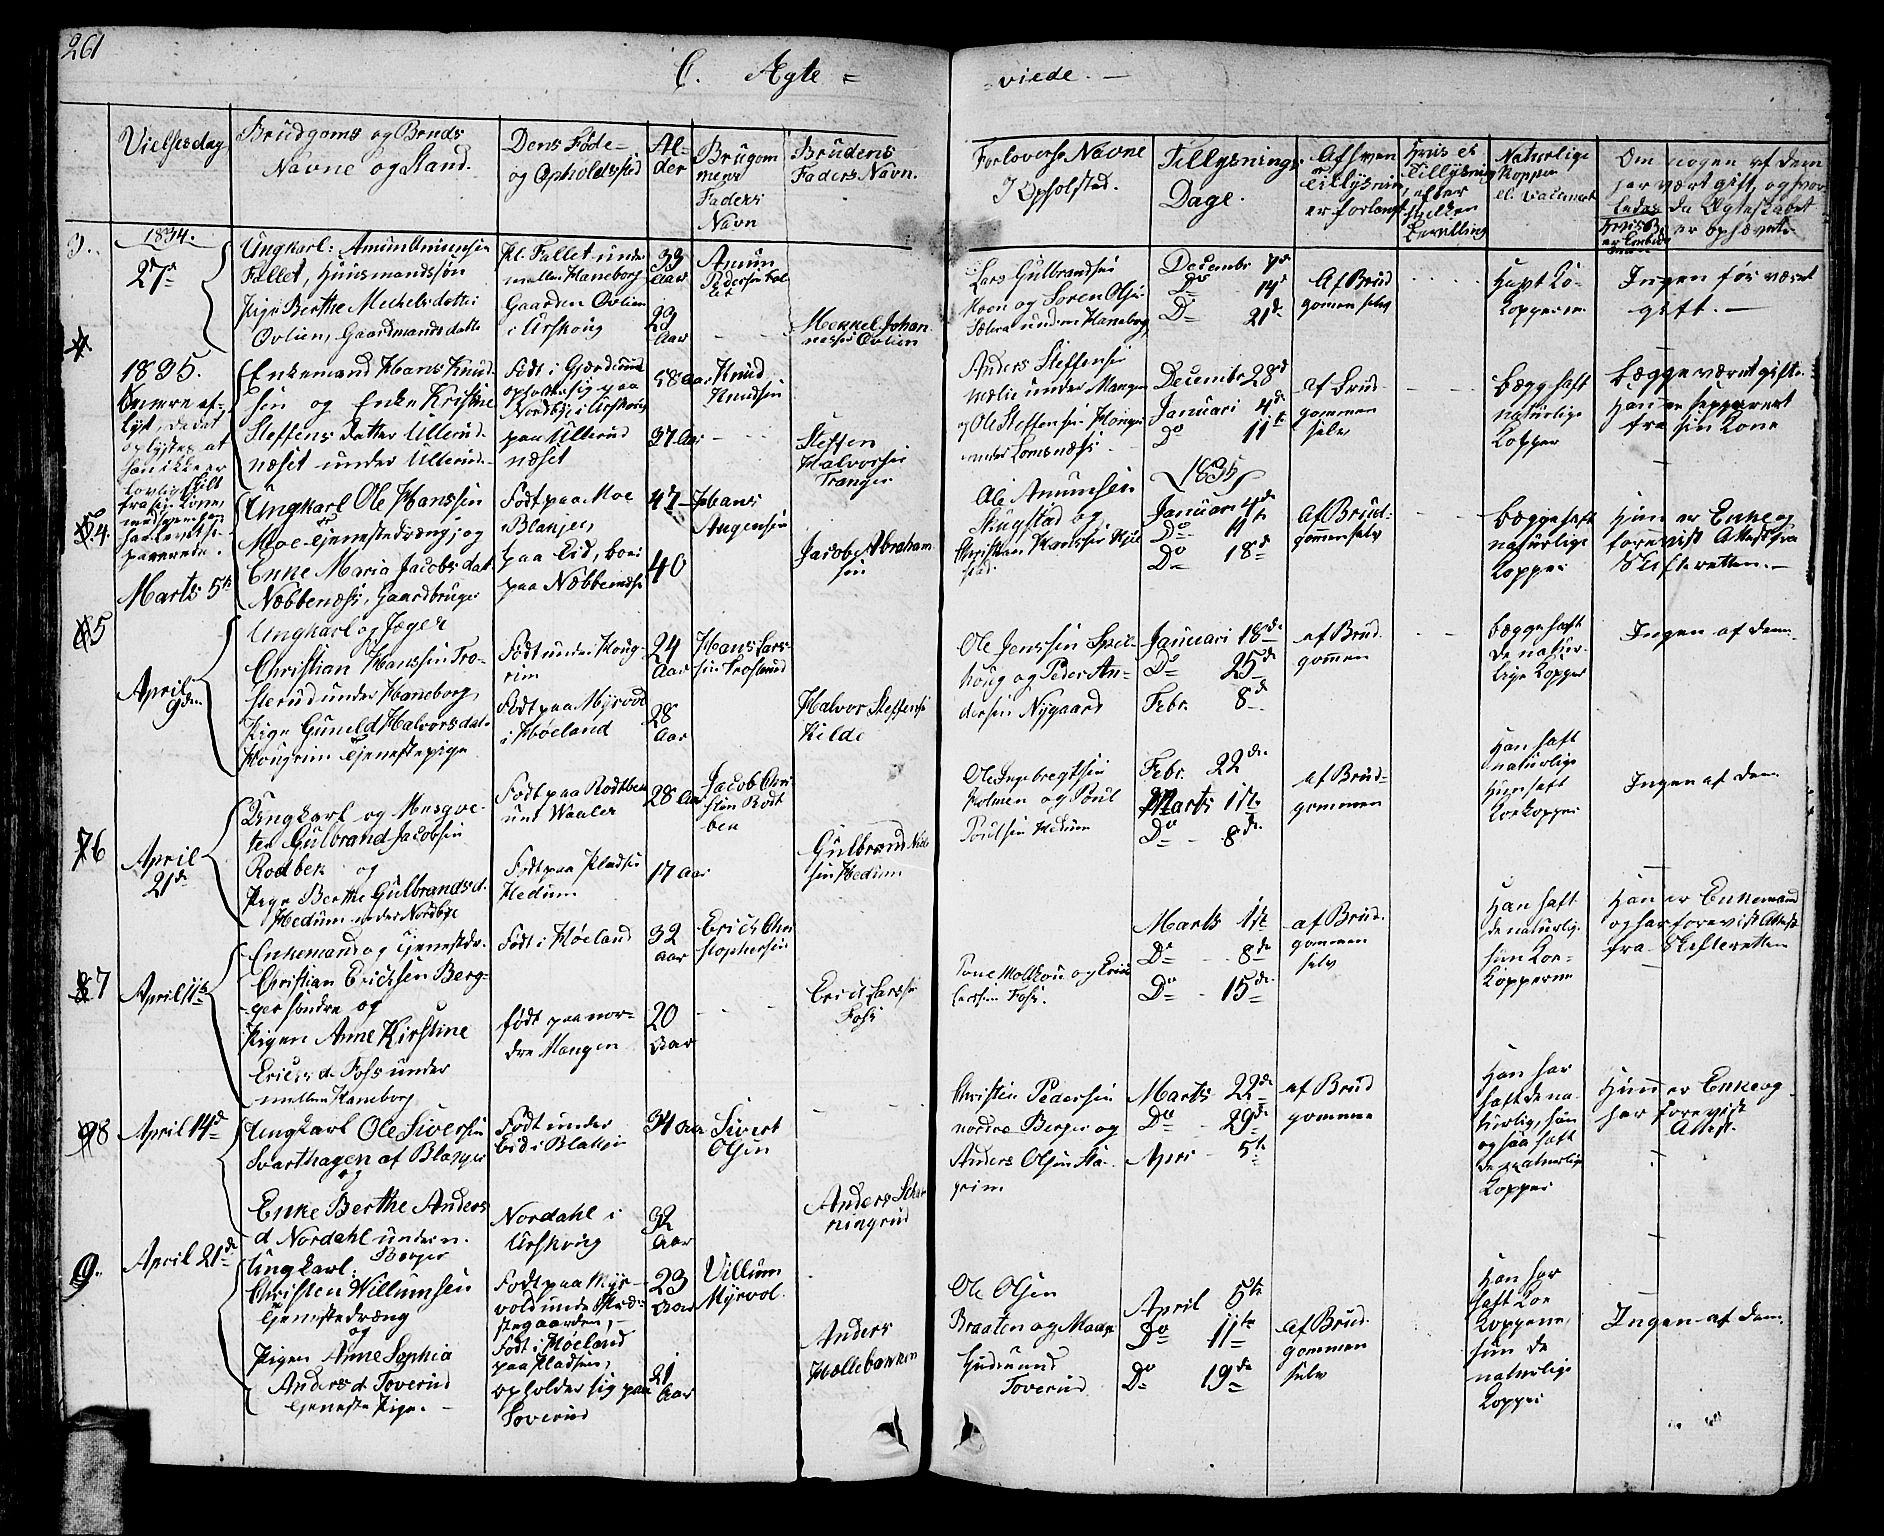 261
C. Ægte =
= viede. —
Vielsesdag
Brudgoms og Bruds
Navne og Stand.
Deres Føde-
og Opholdssted
Al-
der
Brugom
mens
Faders
Navn
Brudens
Faders Navn.
Forlovers Navne
Opholsted.
Tillysnings
Dage.
Af hvem
Tillysning
er forlangt
Hvis ei
Tillysning
efter
hvilken
Bevilling
Naturlige
Kopper
el. vaccineret
Om nogen af dem
har vært gift, og hvor
ledes da Ægteskabet
er ophævet
3.
1834.
27de
Ungkarl: Amun Amunsen
Fallet, Huusmandssøn
Pige Berthe Mechelsdatter
Ovlien, Gaardmandsdatter
Pl. Fallet under
mellem Haneborg
Gaarden Ovlien
i Urskoug
33
Aar
23
Aar
Amun
Pedersen Fal-
let
Mekkel Johan
nessen Ovlien
Lars Gulbrandsen
Moen og Søren Olsen
under Haneborg
Decembr 7de
Do 14de
Do 21de
Af Brud
gomen selv
Havt Ko-
pperne
Ingen før været
gift. —
4.
1835.
Enkemand Hans Knud
sen og Enke Kristine
Steffens datter Ullerud
næset under Ullerud
Født i Gjerdrum
opholder sig paa
Nordbye i Urskoug
paa Ullerud
næset
58 Aar
37 Aar
Knud
Knudsen
Steffen
Halvorsen
Tranger
Anders Steffensen
Mælie under Mangen
og Ole Steffensen
under Lomsnæss
Decembr 28de
Januari 4de
Do 11te
af Brud
gommen
selv
begge haft
naturlige
Kopper
begge været gifte
Han er sepperert
fra sin Kone
oplystes at
han ikke er
lovlig skilt
fra sin Kone,
54.
Marts 5te
Ungkarl Ole Hanssen
Moe Tjenestedreng, og
Enke Maria Jacobsdat
Næbbenæss, Gaardbruger
Født paa Moe
Blakjer,
paa Eid, boer
paa Næbbenæs
47
40
Hans
Augensen
Jacob Abraham
sen
Ole Amunsen
Skugstad og
Christian Hanssen
1835
Januari 4de
Do 11te
Do 18de
Af Brud-
gommen selv
begge haft
naturlige
Kopper
Hun er Enke og
forevist Attest fra
Skifteretten. —
65
April
9de
Ungkarl og Jæger
Christian Hanssen Tro-
sterud under Haneborg,
Pige Guneld Halvorsdat
Hougrim Tjenestepige
Født under Houg-
rim
Født paa Myrvol
i Høeland
24
Aar
28
Aar
Hans Lars-
sen Trosterud
Halvor Steffensen
Kilde
Ole Jenssen Spil-
houg og Peder An-
dersen Nygaard
Januari 18de
Do 25de
Febr. 8de
af Brud
gommen
begge haft
de natur-
lige Kopper
Ingen af dem
76
April
21de
Ungkarl og Musqve-
ter Gulbrand Jacobsen
Rodbek og
Pige Berthe Gulbrandsd.
Hedum under Nordbye
Født paa Rodtben
und Waaler
Født paa Pladsen
Hedum
28 Aar
17 Aar
Jacob Chri
sten Rodt
ben
Gulbrand Niel
sen Hedum
Ole Ingebregtsen
Holmen og Poul
Poulsen Hedum
Febr. 22de
Marts 1ste
Do 8de
af Brud-
gommen
Han haft
naturlige
Hun haft
Kokopper
Ingen af dem
87
April 11te
Enkemand og Tjenestedr.
Christian Ericksen Berg-
ger søndre og
Pigen Anne Kirstine
Ericsd. Foss under
mellem Haneborg
Født i Høeland
født paa nor-
dre Mangen
32
Aar
20
Aar
Erick Chri
stophersen
Erick Larssen
Foss
Poul Molthou og Erick
Larssen Foss.
Marts 1ste
Do 8de
Do 15de
af Brud.
gommen
selv
Han haft
de naturlige
hun Ko-
kopperne
Han er Enkemand
og har forevist Attest
fra Skifteretten
98
April 14de
Ungkarl Ole Siversen
Svarthagen af Blakjer
og
Enke Berthe Anders
d Nordahl under n.
Berger
Født under
Eid i Blakjer
Nordahl i
Urskoug
34 Aar
32
Aar
Sivert
Olsen
Anders
Christen Pedersen
nordre Berger og
Anders Olsen Ha-
grim
Marts 22de
Do 29de
Apri 5te
af Brud
gommen
Han har
haft de na-
turlige, hun
og saa haft
de naturlige
Kopper
Hun er Enke og
har forevist
Attest.
9.
April 21de
Ungkarl:
Christen Willumsen
Tjenestedræng
og
Pigen Anne Sophia
Anders d. Toverud
Tjeneste Pige. —
Født paa Myr-
vold under Præ-
stegaarden, —
Født i Høeland
paa Pladsen,
opholder sig paa
Toverud
23
Aar
21
Aar
Villum
Myrvol.
Anders
Hollebakken
Ole Olsen
Braaten og Mads
Gudmund
Toverud
April 5te
Do 11te
Do 19de
af Brud
gommen
selv
Han har
haft Ko
Kopperne,
hun de
naturlige
Kopper
Ingen af dem.